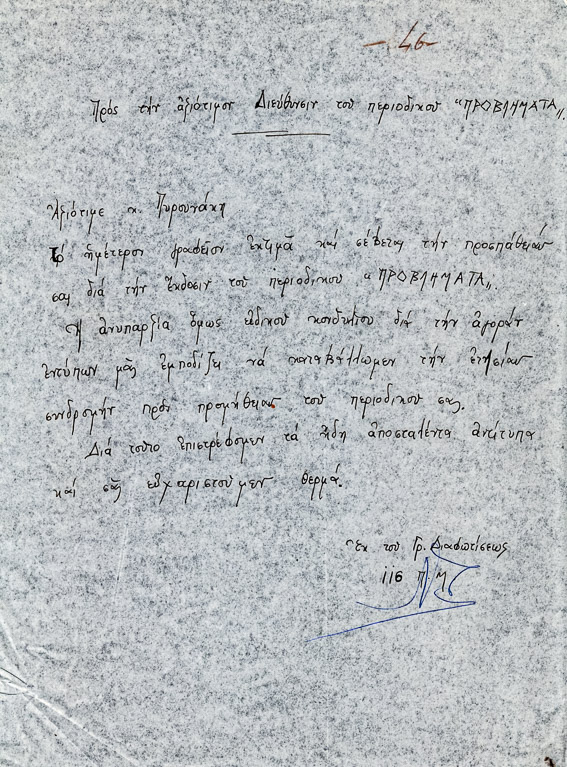 - 46 -
Πρός τήν ἀξιότιμον Διεύθυνσιν τοῦ περιοδικοῦ "ΠΡΟΒΛΗΜΑΤΑ".
Ἀξιότιμε κ. Πυρουνάκη
Τό ἡμέτερον γραφεῖον ἐκτιμᾶ καί σέβεται τήν προσπάθειάν
σας διά τήν ἔκδοσιν τοῦ περιοδικοῦ "ΠΡΟΒΛΗΜΑΤΑ".
Ἡ ἀνυπαρξία ὅμως εἰδικοῦ κονδυλίου διά τήν ἀγοράν
ἐντύπων μᾶς ἐμποδίζει νά καταβάλλωμεν τήν ἐτησίαν
συνδρομήν πρός προμήθειαν τοῦ περιοδικοῦ σας.
Διά τοῦτο ἐπιστρέφομεν τά ἤδη ἀποσταλέντα ἀντίτυπα
καί σᾶς εὐχαριστοῦμεν θερμά.
Ἐκ τοῦ Γρ. Διαφωτίσεως
116 Π.Μ